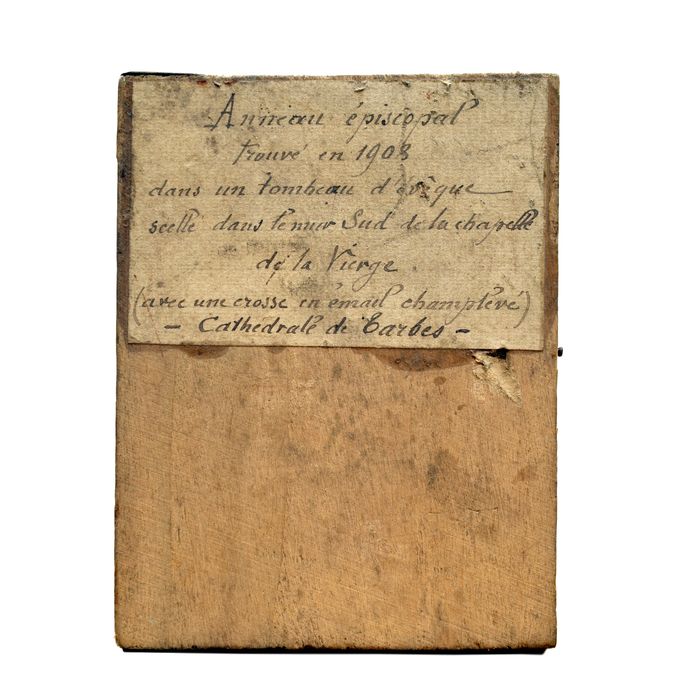 Anneau épiscopal
trouvé en 1903
dans un tombeau d'évêque
scellé dans le mur Sud de la chapelle
de la Vierge
(avec une crosse en émail champlevé)
- Cathédrale de Tarbes -